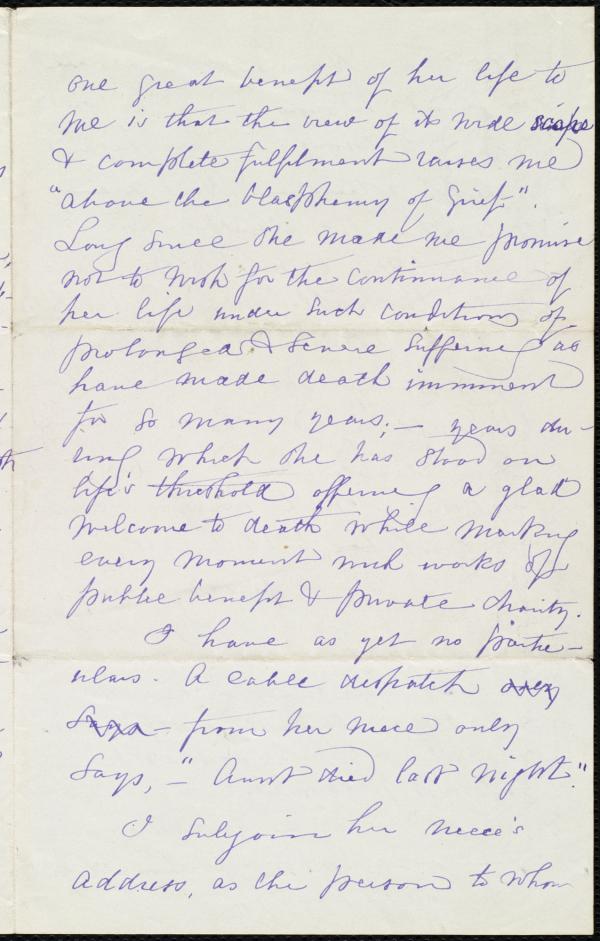 one great benefit of her life to
me is that the view of its wide scope
& complete fulfilment raises me
"above the blasphemy of grief".
Long since she made me promise
not to wish for the continuance of
her life under such conditions of
prolonged & severe suffering as
have made death imminent
for so many years; — years du-
ring which she has stood on
life's threshold offering a glad
welcome to death while marking
every moment with works of
public benefit & private charity.
I have as yet no partic-
ulars. A cable despatch only
says — from her niece only
says, — "Aunt died last night."
I subjoin her niece's
address, as the person to whom